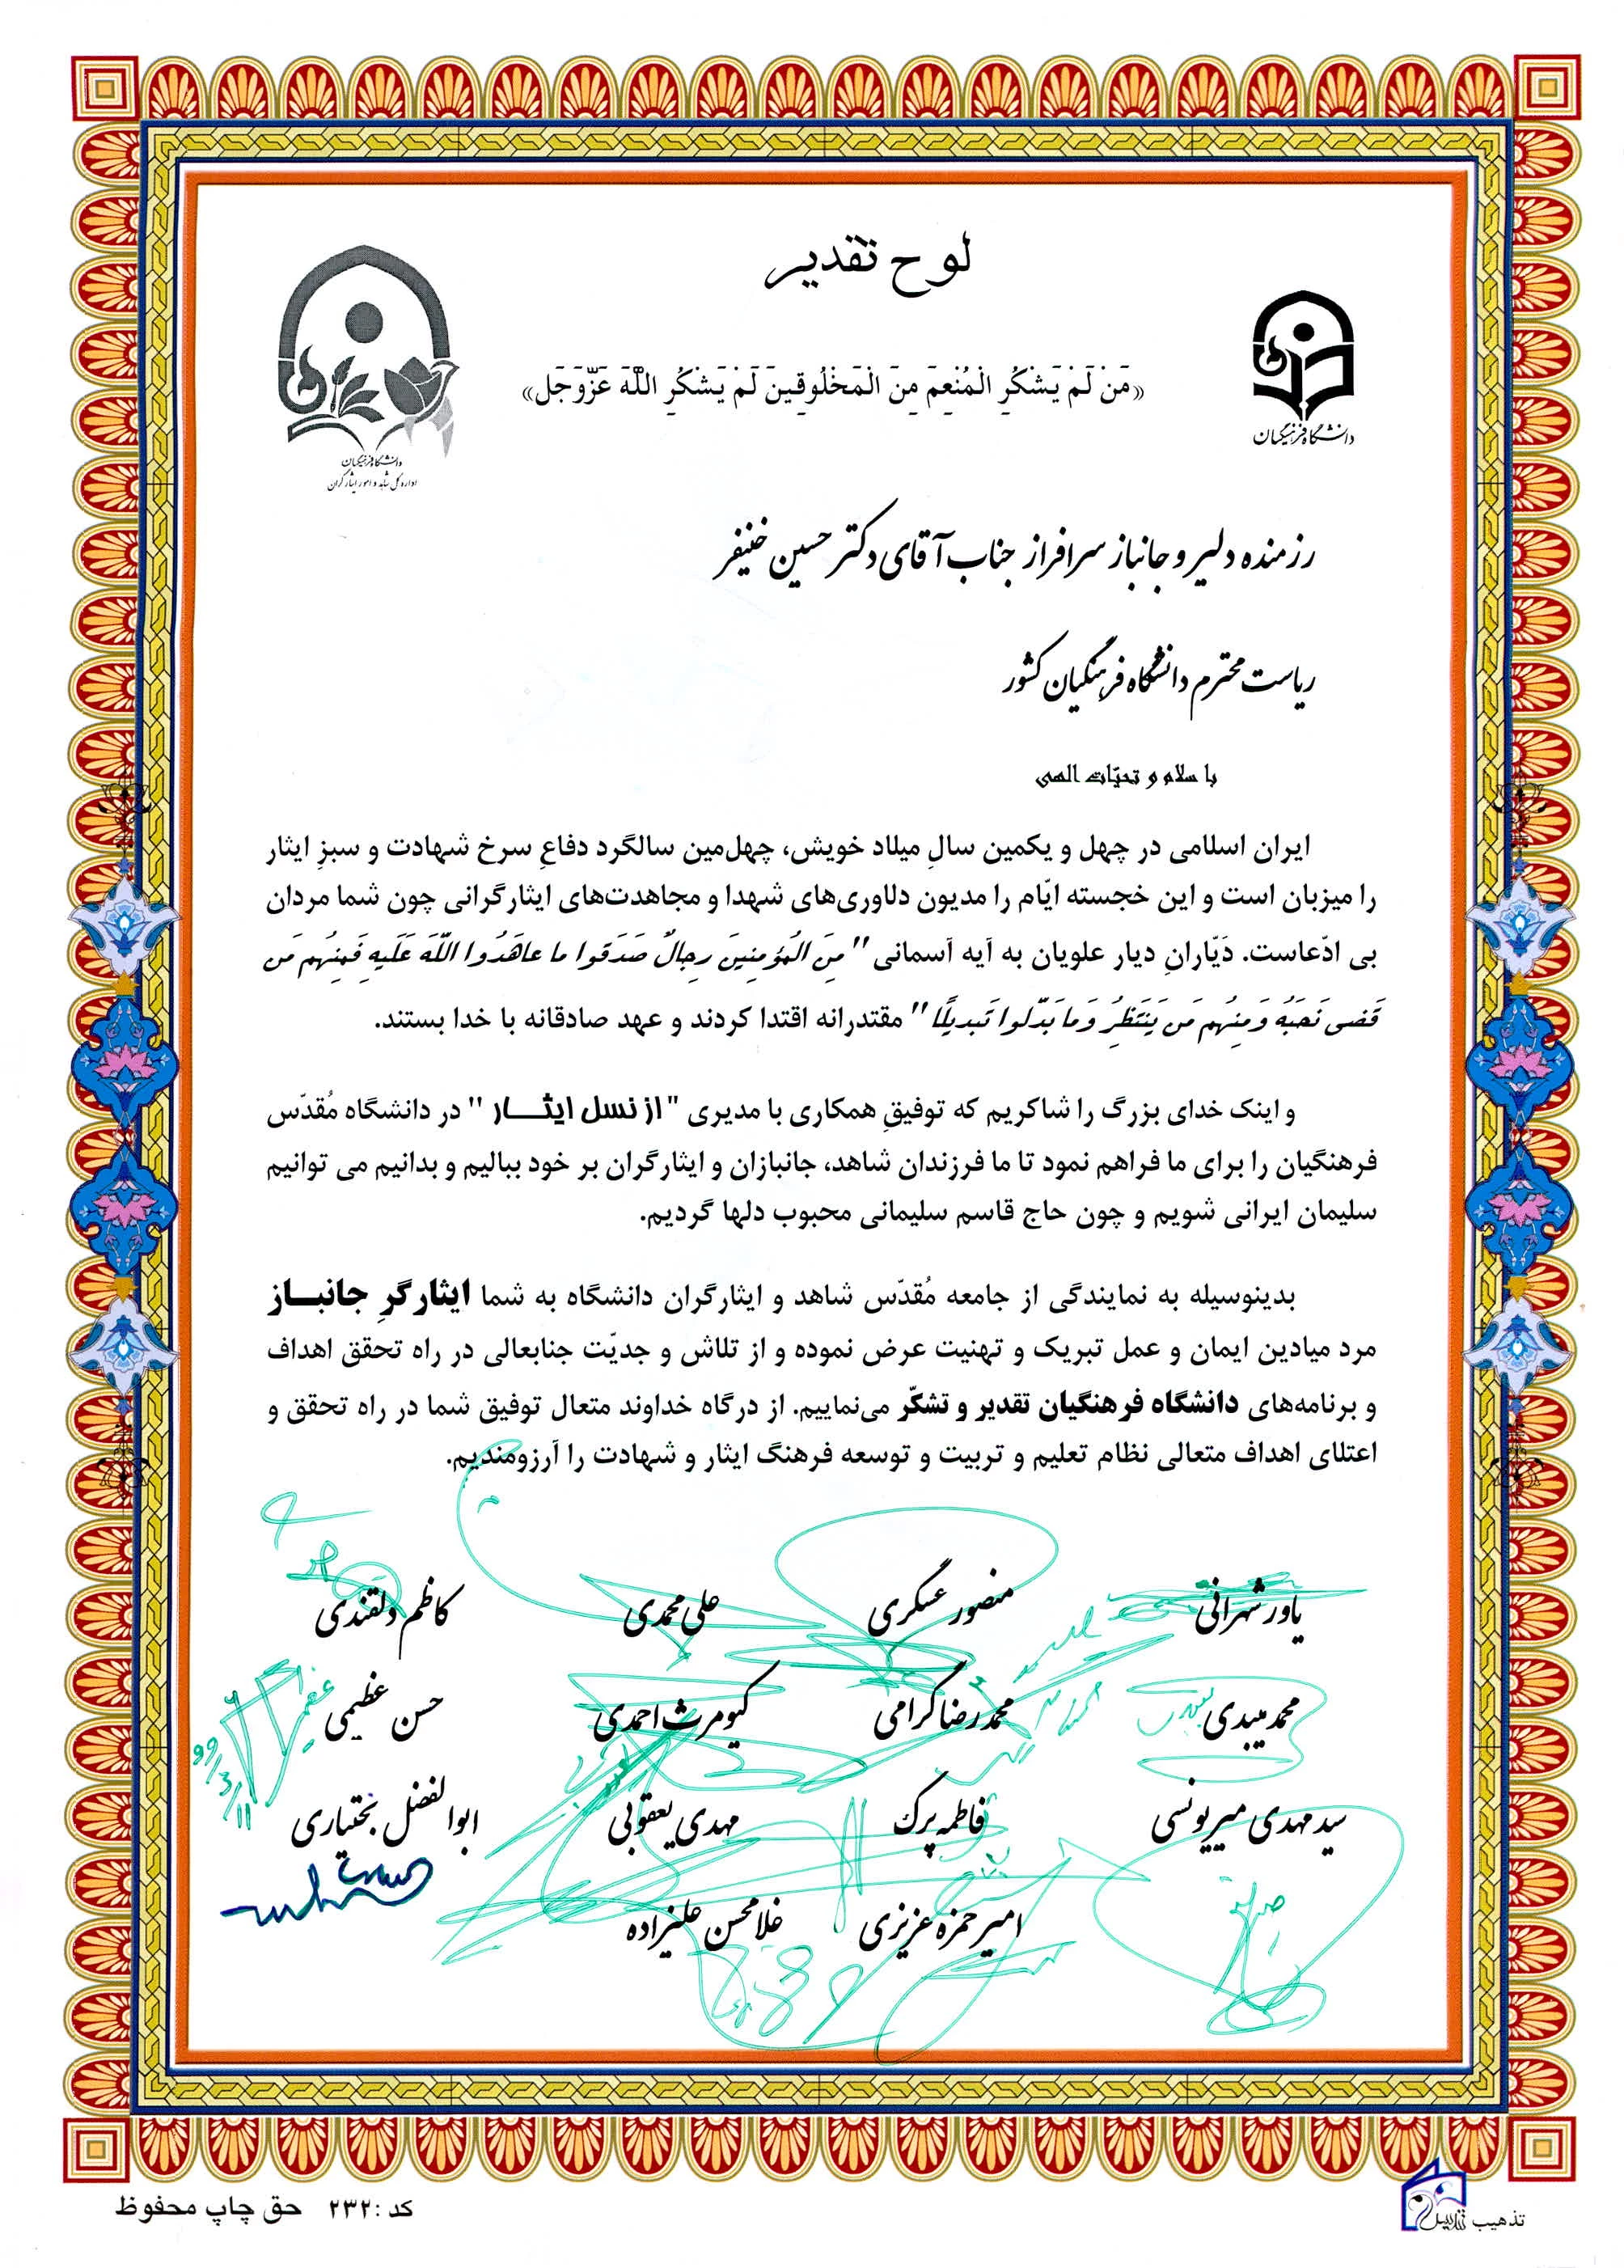 لوح تقدیر
«مَنْ لَمْ یَشْکُرِ الْمُنْعِمَ مِنَ الْمَخْلُوقِینَ لَمْ یَشْکُرِ اللَّهَ عَزَّوَجَل»
دانشگاه فرهنگیان
دانشگاه فرهنگیان
اداره کل شاهد و امور ایثارگران
رزمنده دلیر و جانباز سرافراز جناب آقای دکتر حسین خنیفر
ریاست محترم دانشگاه فرهنگیان کشور
با سلام و تحیّات الهی
ایران اسلامی در چهل و یکمین سالِ میلاد خویش، چهل‌مین سالگرد دفاعِ سرخ شهادت و سبزِ ایثار
را میزبان است و این خجسته ایّام را مدیون دلاوری‌های شهدا و مجاهدت‌های ایثارگرانی چون شما مردان
بی ادّعاست. دَیّارانِ دیار علویان به آیه آسمانی "مِنَ المُؤمِنینَ رِجالٌ صَدَقوا ما عاهَدُوا اللَّهَ عَلَیهِ فَمِنهُم مَن
قَضی نَحبَهُ وَمِنهُم مَن یَنتَظِرُ وَما بَدَّلوا تَبدیلًا" مقتدرانه اقتدا کردند و عهد صادقانه با خدا بستند.
و اینک خدای بزرگ را شاکریم که توفیقِ همکاری با مدیری "از نسل ایثـــار" در دانشگاه مُقدّس
فرهنگیان را برای ما فراهم نمود تا ما فرزندان شاهد، جانبازان و ایثارگران بر خود ببالیم و بدانیم می توانیم
سلیمان ایرانی شویم و چون حاج قاسم سلیمانی محبوب دلها گردیم.
بدینوسیله به نمایندگی از جامعه مُقدّس شاهد و ایثارگران دانشگاه به شما ایثارگرِ جانبـــاز
مرد میادین ایمان و عمل تبریک و تهنیت عرض نموده و از تلاش و جدیّت جنابعالی در راه تحقق اهداف
و برنامه‌های دانشگاه فرهنگیان تقدیر و تشکّر می‌نماییم. از درگاه خداوند متعال توفیق شما در راه تحقق و
اعتلای اهداف متعالی نظام تعلیم و تربیت و توسعه فرهنگ ایثار و شهادت را آرزومندیم.
یاور شهرانی منصور عسگری علی محمدی کاظم دلقندی
محمد میبدی محمدرضا گرامی کیومرث احمدی حسن عظیمی
سید مهدی میریونسی فاطمه پرک مهدی یعقوبی ابوالفضل بختیاری
امیر حمزه عزیزی غلامحسن علیزاده
۹۹/۳/۱۱
کد : ۲۳۲ حق چاپ محفوظ
تذهیب تندیس